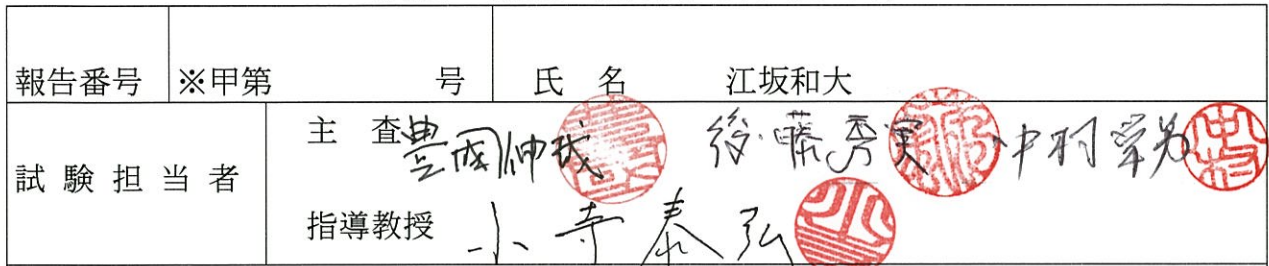 報告番号 ※甲第 号 氏 名 江坂和大
試 験 担 当 者 主 査 豊國伸哉 後藤秀実 中村栄男
指導教授 小寺泰弘